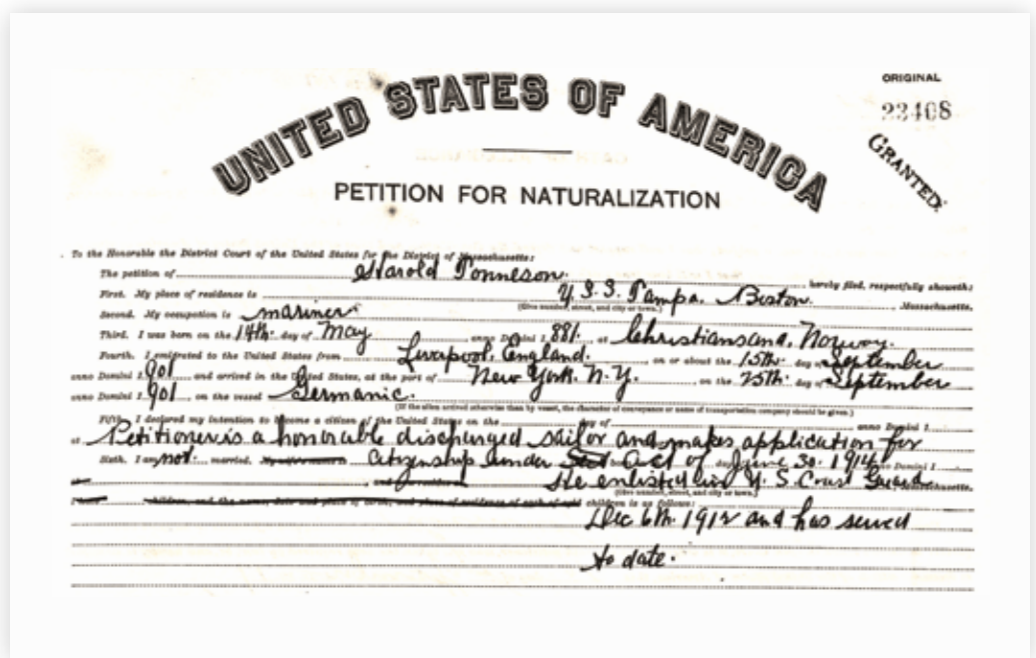 ORIGINAL
23408
GRANTED.
UNITED STATES OF AMERICA
PETITION FOR NATURALIZATION
To the Honorable the District Court of the United States for the District of Massachusetts:
The petition of Harold Tonneson. hereby filed, respectfully showeth:
First. My place of residence is U.S.S. Tampa, Boston. Massachusetts.
(Give number, street, and city or town.)
Second. My occupation is mariner
Third. I was born on the 14th. day of May anno Domini 1 881. at Christiansand, Norway.
Fourth. I emigrated to the United States from Liverpool, England. on or about the 15th. day of September
anno Domini 1 901 and arrived in the United States, at the port of New York, N.Y. on the 25th. day of September
anno Domini 1 901 on the vessel Germanic.
(If the alien arrived otherwise than by vessel, the character of conveyance or name of transportation company should be given.)
Fifth. I declared my intention to become a citizen of the United States on the day of anno Domini 1
at Petitioner is a honorable discharged sailor and makes application for
Sixth. I am not married. citizenship under Act of June 30. 1914 anno Domini 1
He enlisted in U.S. Coast Guard Massachusetts,
(Give number, street, and city or town.)
children is as follows:
Dec 6th. 1912 and has served
to date.